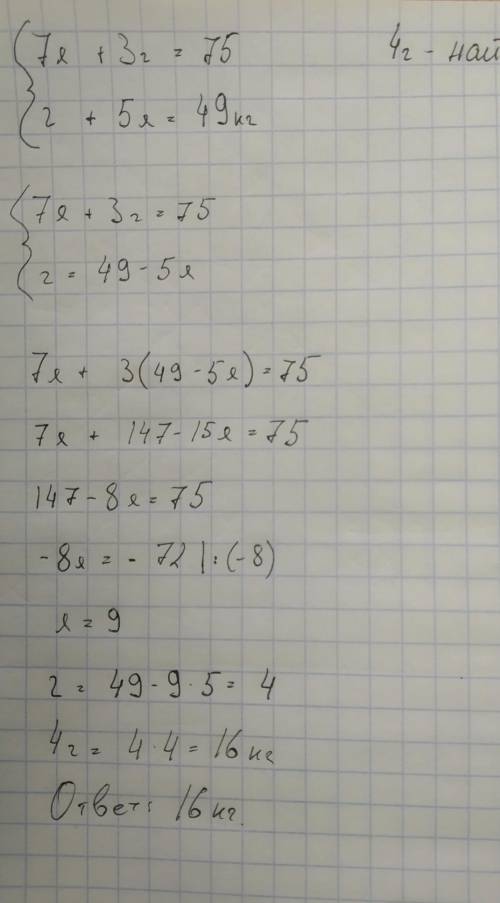 7я + 3г = 75 4г - най
г + 5я = 49кг
7я + 3г = 75
г = 49 - 5я
7я + 3(49 - 5я) = 75
7я + 147 - 15я = 75
147 - 8я = 75
-8я = - 72 |: (-8)
я = 9
г = 49 - 9 · 5 = 4
4г = 4 · 4 = 16 кг
Ответ: 16 кг.